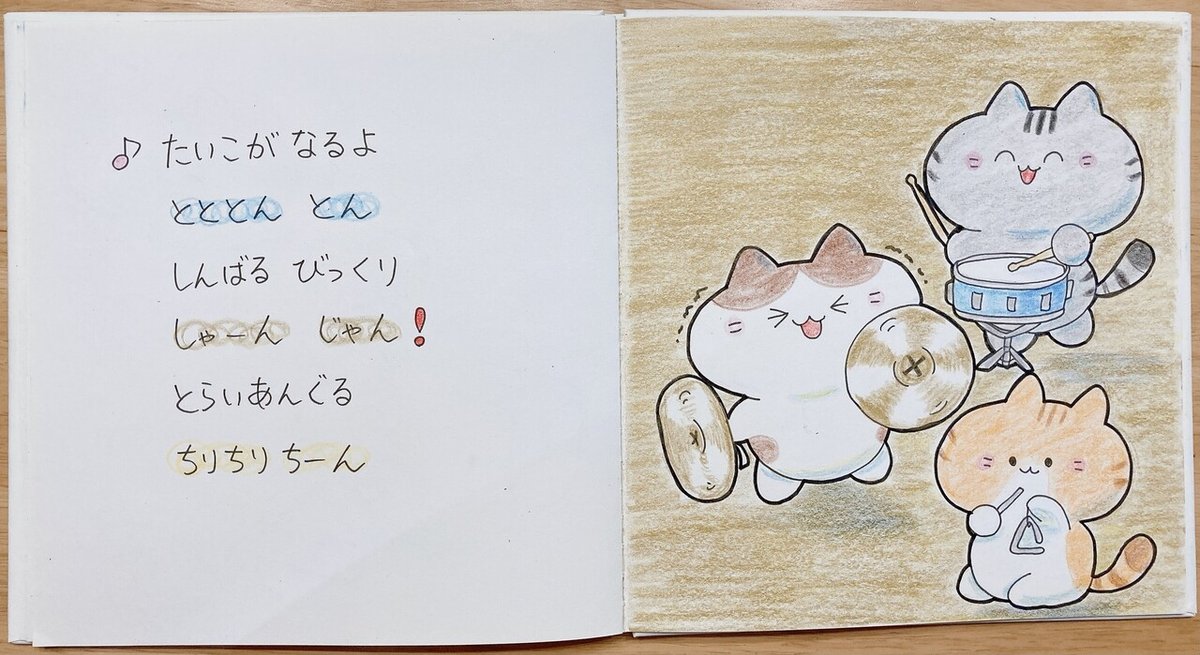 ♪ たいこが なるよ
とととん とん
しんばる びっくり
しゃーん じゃん!
とらいあんぐる
ちりちり ちーん